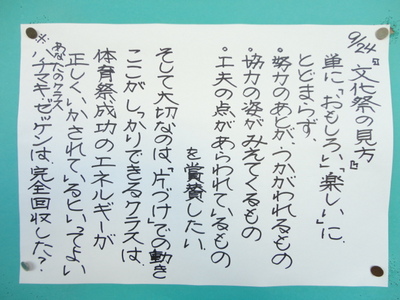 9/24 『文化祭の見方』
単に「おもしろい」「楽しい」に
とどまらず、
・努力のあとがうかがわれるもの
・協力の姿がみえてくるもの
・工夫の点があらわれているもの
を賞賛したい。
そして大切なのは、「片づけ」での動き
ここがしっかりできるクラスは、
体育祭成功のエネルギーが
正しくいかされているといってよい
あなたのクラス
※ハチマキゼッケンは、完全回収した？